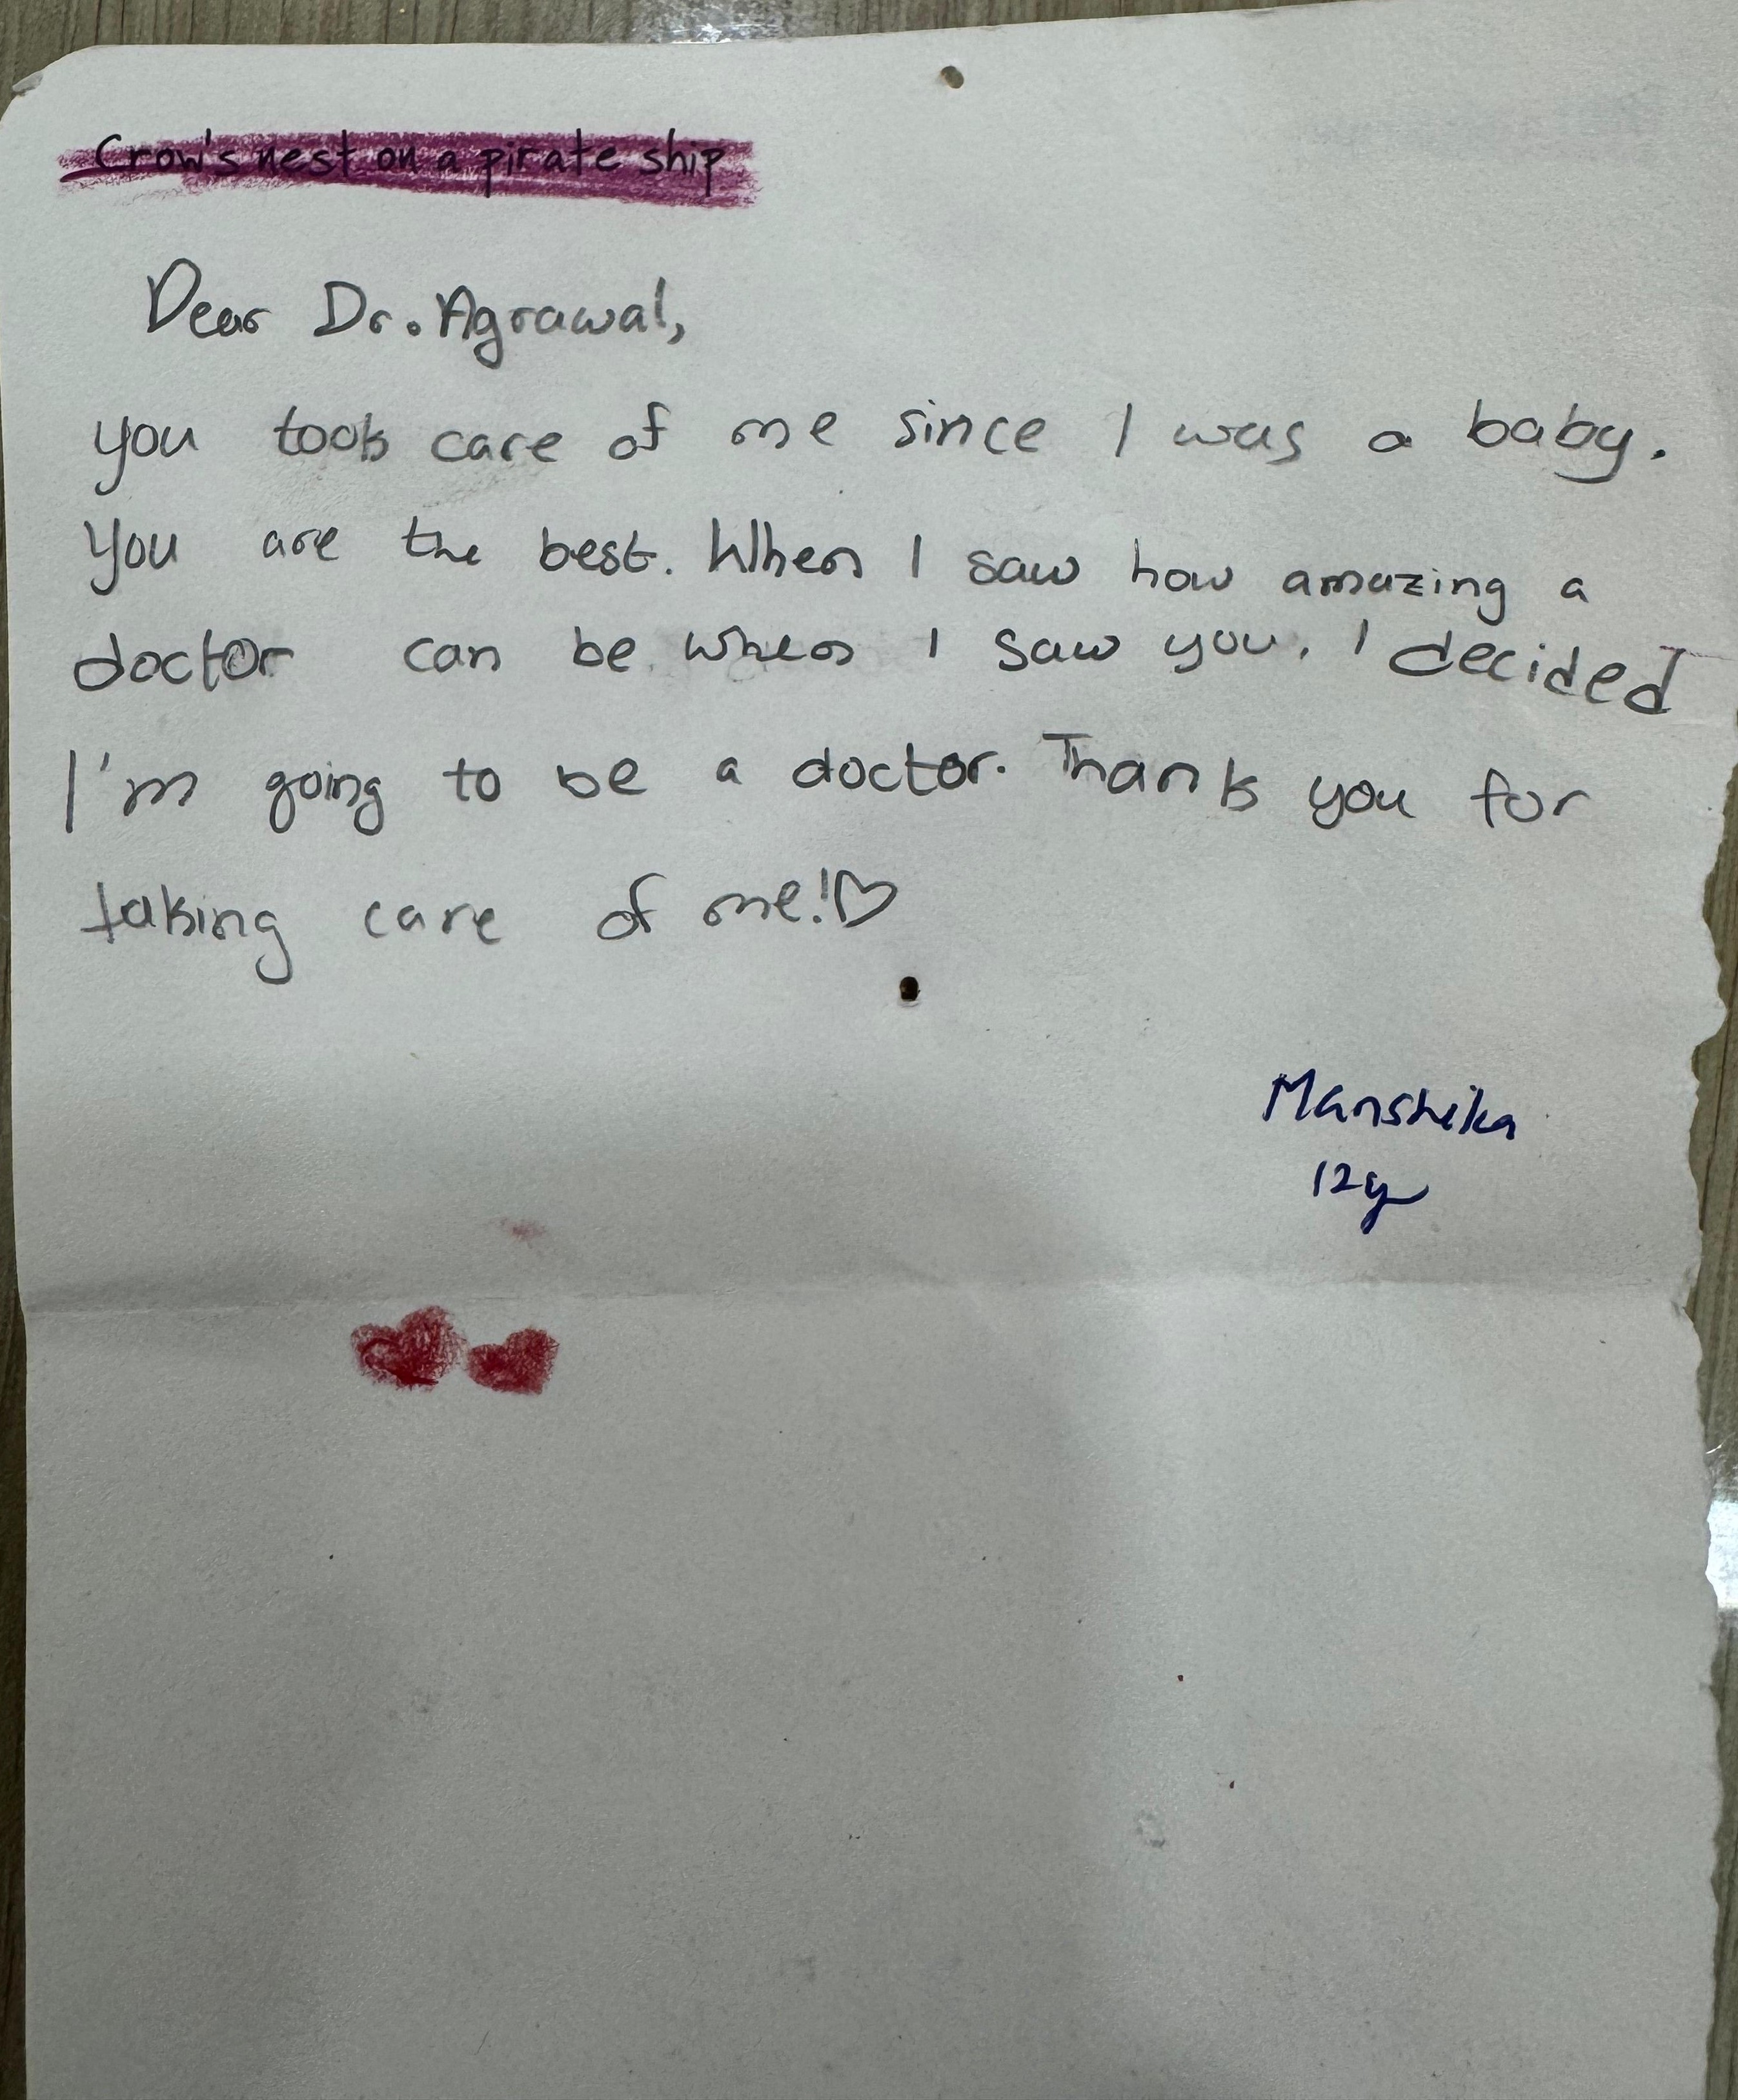 Crow's nest on a pirate ship
Dear Dr. Agrawal,
you took care of me since I was a baby.
You are the best. When I saw how amazing a
doctor can be when I saw you, I decided
I'm going to be a doctor. Thank you for
taking care of me!♡
Manshika
12y